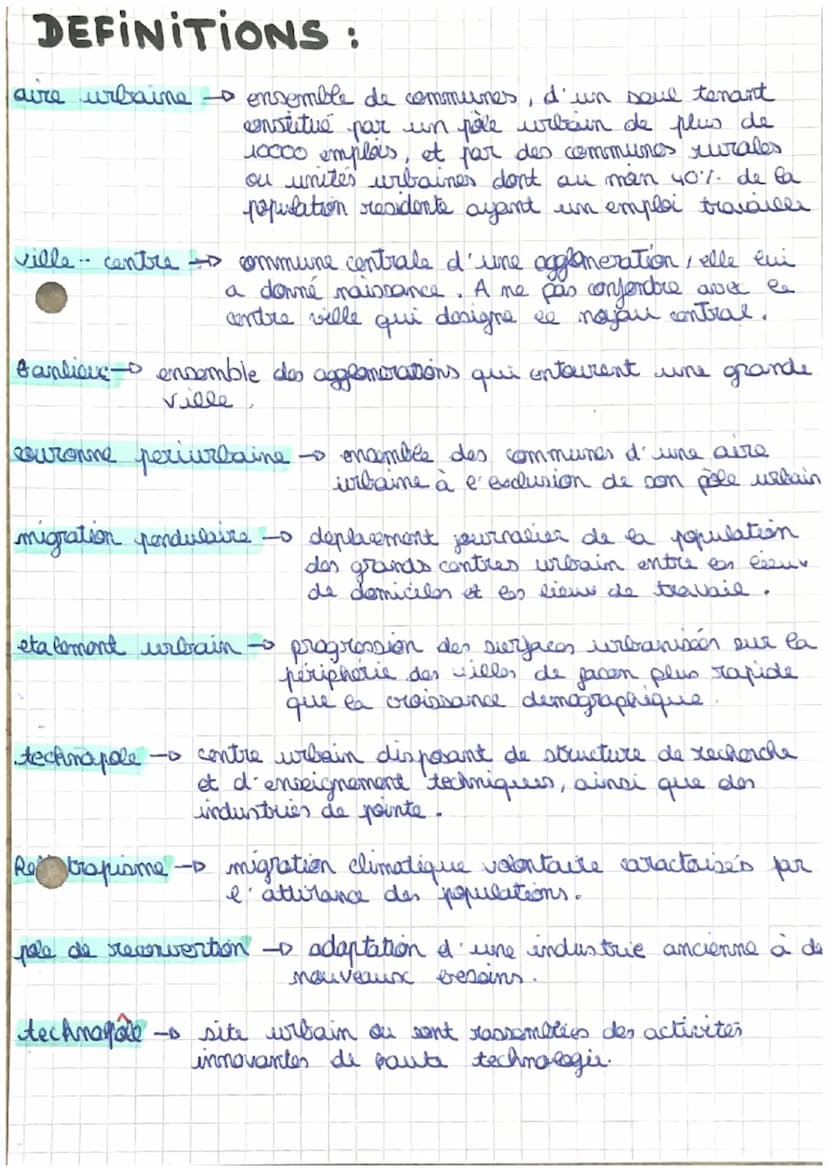 DEFINITIONS :
aire urbaine → ensemble de communes, d'un seul tenant
constitué par un pôle urbain de plus de
10000 emplois, et par des communes rurales
ou unités urbaines dont au moin 40% de la
population residente ayant un emploi travailler
ville - centre → commune centrale d'une agglomeration, elle lui
a donné naissance. A ne pas confondre avec le
centre ville qui designe le noyau central.
banlieue → ensemble des agglomerations qui entourent une grande
ville.
couronne periurbaine → ensemble des communes d'une aire
urbaine à l'exclusion de son pôle urbain
migration pendulaire → deplacement journalier de la population
des grands centres urbain entre les lieux
de domiciles et les lieux de travail.
etalement urbain → progression des surfaces urbanisées sur la
périphérie des villes de facon plus rapide
que la croissance demographique.
technopole → centre urbain disposant de structure de recherche
et d'enseignement techniques, ainsi que des
industries de pointe.
tropisme → migration climatique volontaire caracterisés par
l'attirance des populations.
pole de reconvertion → adaptation d'une industrie ancienne à de
nouveaux besoins.
technopôle → site urbain ou sont rassemblées des activités
innovantes de haute technologie.